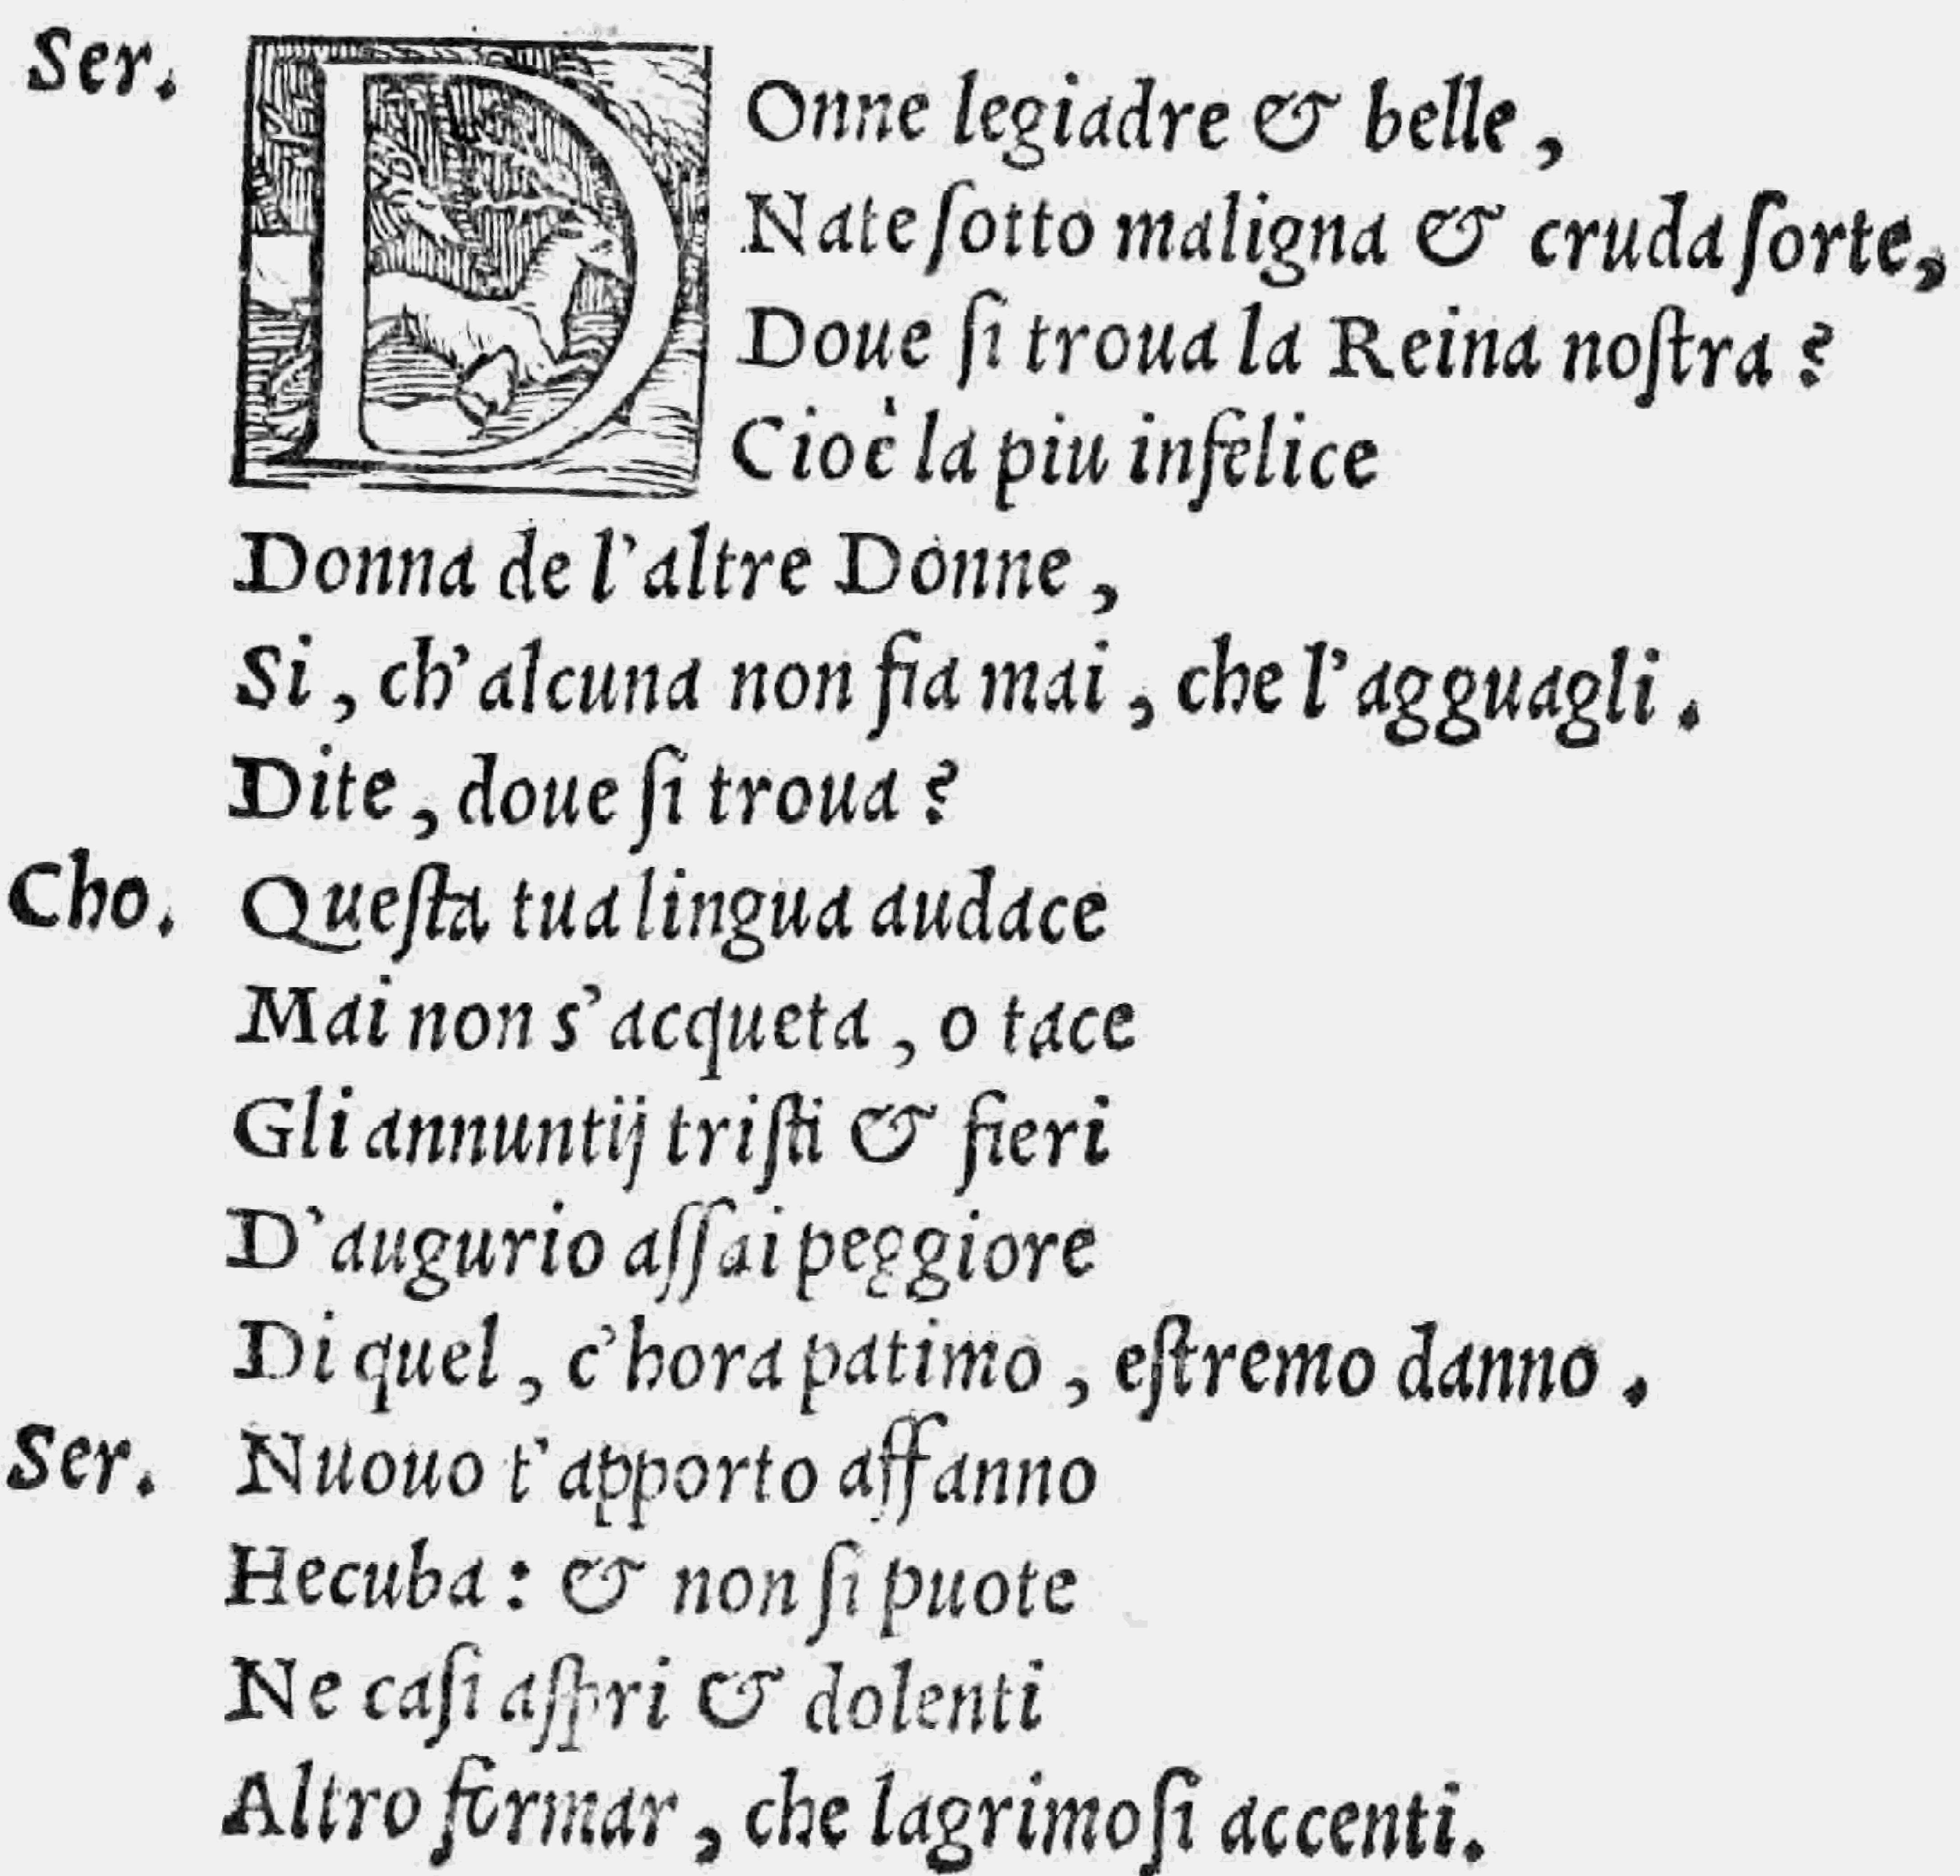 Ser. DOnne legiadre & belle,
Nate ſotto maligna & cruda ſorte,
Doue ſi troua la Reina noſtra?
Cioè la piu infelice
Donna de l'altre Donne,
Si, ch'alcuna non fia mai, che l'agguagli.
Dite, doue ſi troua?
Cho. Queſta tua lingua audace
Mai non s'acqueta, o tace
Gli annuntij triſti & fieri
D'augurio aſſai peggiore
Di quel, c'hora patimo, eſtremo danno.
Ser. Nuouo t'apporto affanno
Hecuba: & non ſi puote
Ne caſi aſpri & dolenti
Altro formar, che lagrimoſi accenti.